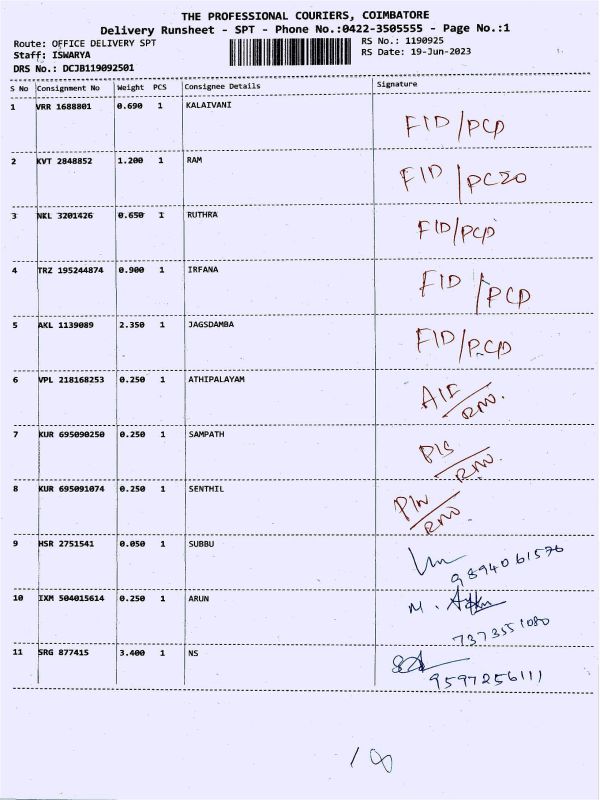 THE PROFESSIONAL COURIERS, COIMBATORE
Delivery Runsheet - SPT - Phone No.:0422-3505555 - Page No.:1
Route: OFFICE DELIVERY SPT RS No.: 1190925
Staff: ISWARYA RS Date: 19-Jun-2023
DRS No.: DCJB119092501
S No Consignment No Weight PCS Consignee Details Signature
1 VRR 1688801 0.690 1 KALAIVANI
FID/PCD
2 KVT 2848852 1.200 1 RAM
FID
3 NKL 3201426 0.650 1 RUTHRA
FID/PCD
4 TRZ 195244874 0.900 1 IRFANA
FID/PCD
5 AKL 1139089 2.350 1 JAGSDAMBA
FID/PCD
6 VPL 218168253 0.250 1 ATHIPALAYAM
7 KUR 695090250 0.250 1 SAMPATH
8 KUR 695091074 0.250 1 SENTHIL
9 HSR 2751541 0.050 1 SUBBU
9894061576
10 IXM 504015614 0.250 1 ARUN
M.
7373551080
11 SRG 877415 3.400 1 NS
9597256111